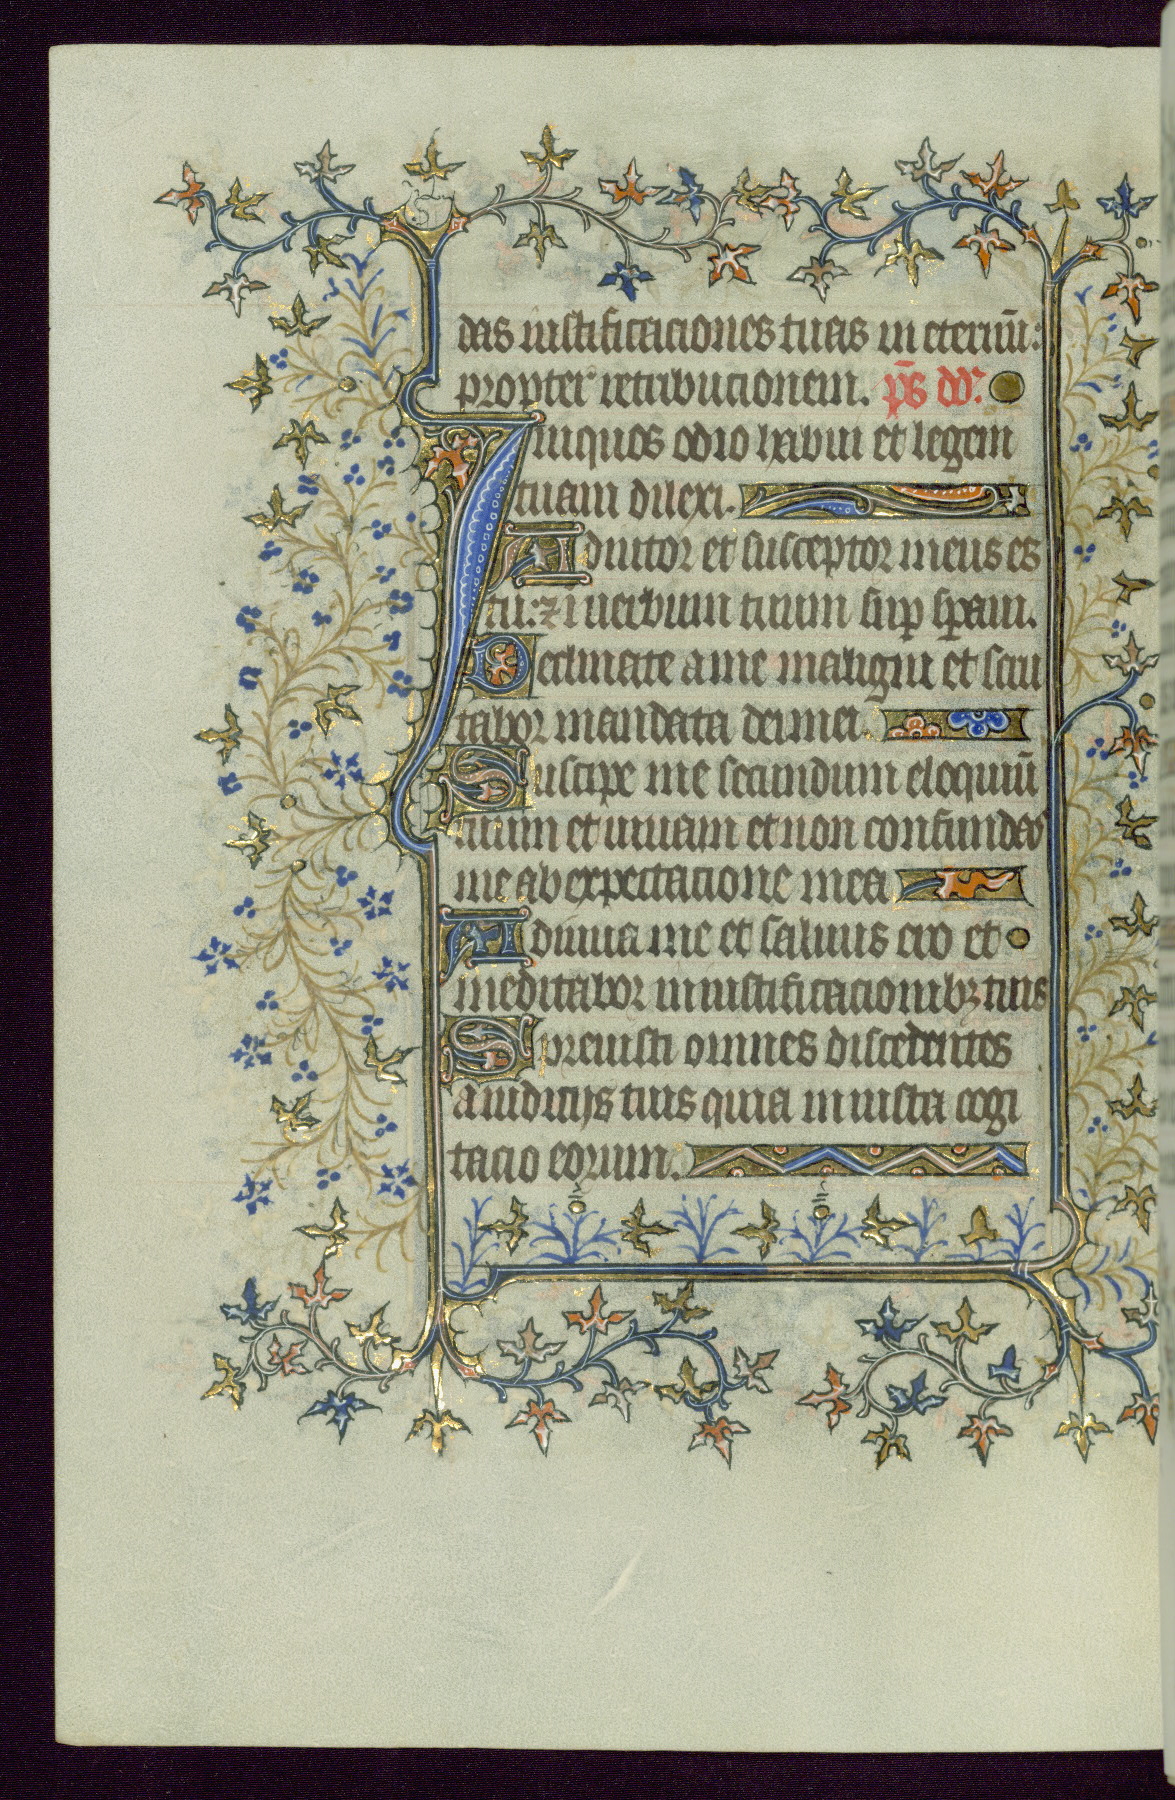 das iustificaciones tuas in eternū:
propter retribucionem. p̄s dd'.
Iniquos odio habui et legem
tuam dilexi.
Adiutor et susceptor meus es
tu: ⁊ i uerbum tuum sup sp̄aui.
Declinate a me maligni et scru
tabor mandata dei mei.
Suscipe me secundum eloquiū
tuum et uiuam et non confundas
me ab expectacione mea
Adiuua me et saluus ero et
meditabor in iustificacionibꝫ tuis
Spreuisti omnes discedentes
a iudicijs tuis quia iniusta cogi
tacio eorum.